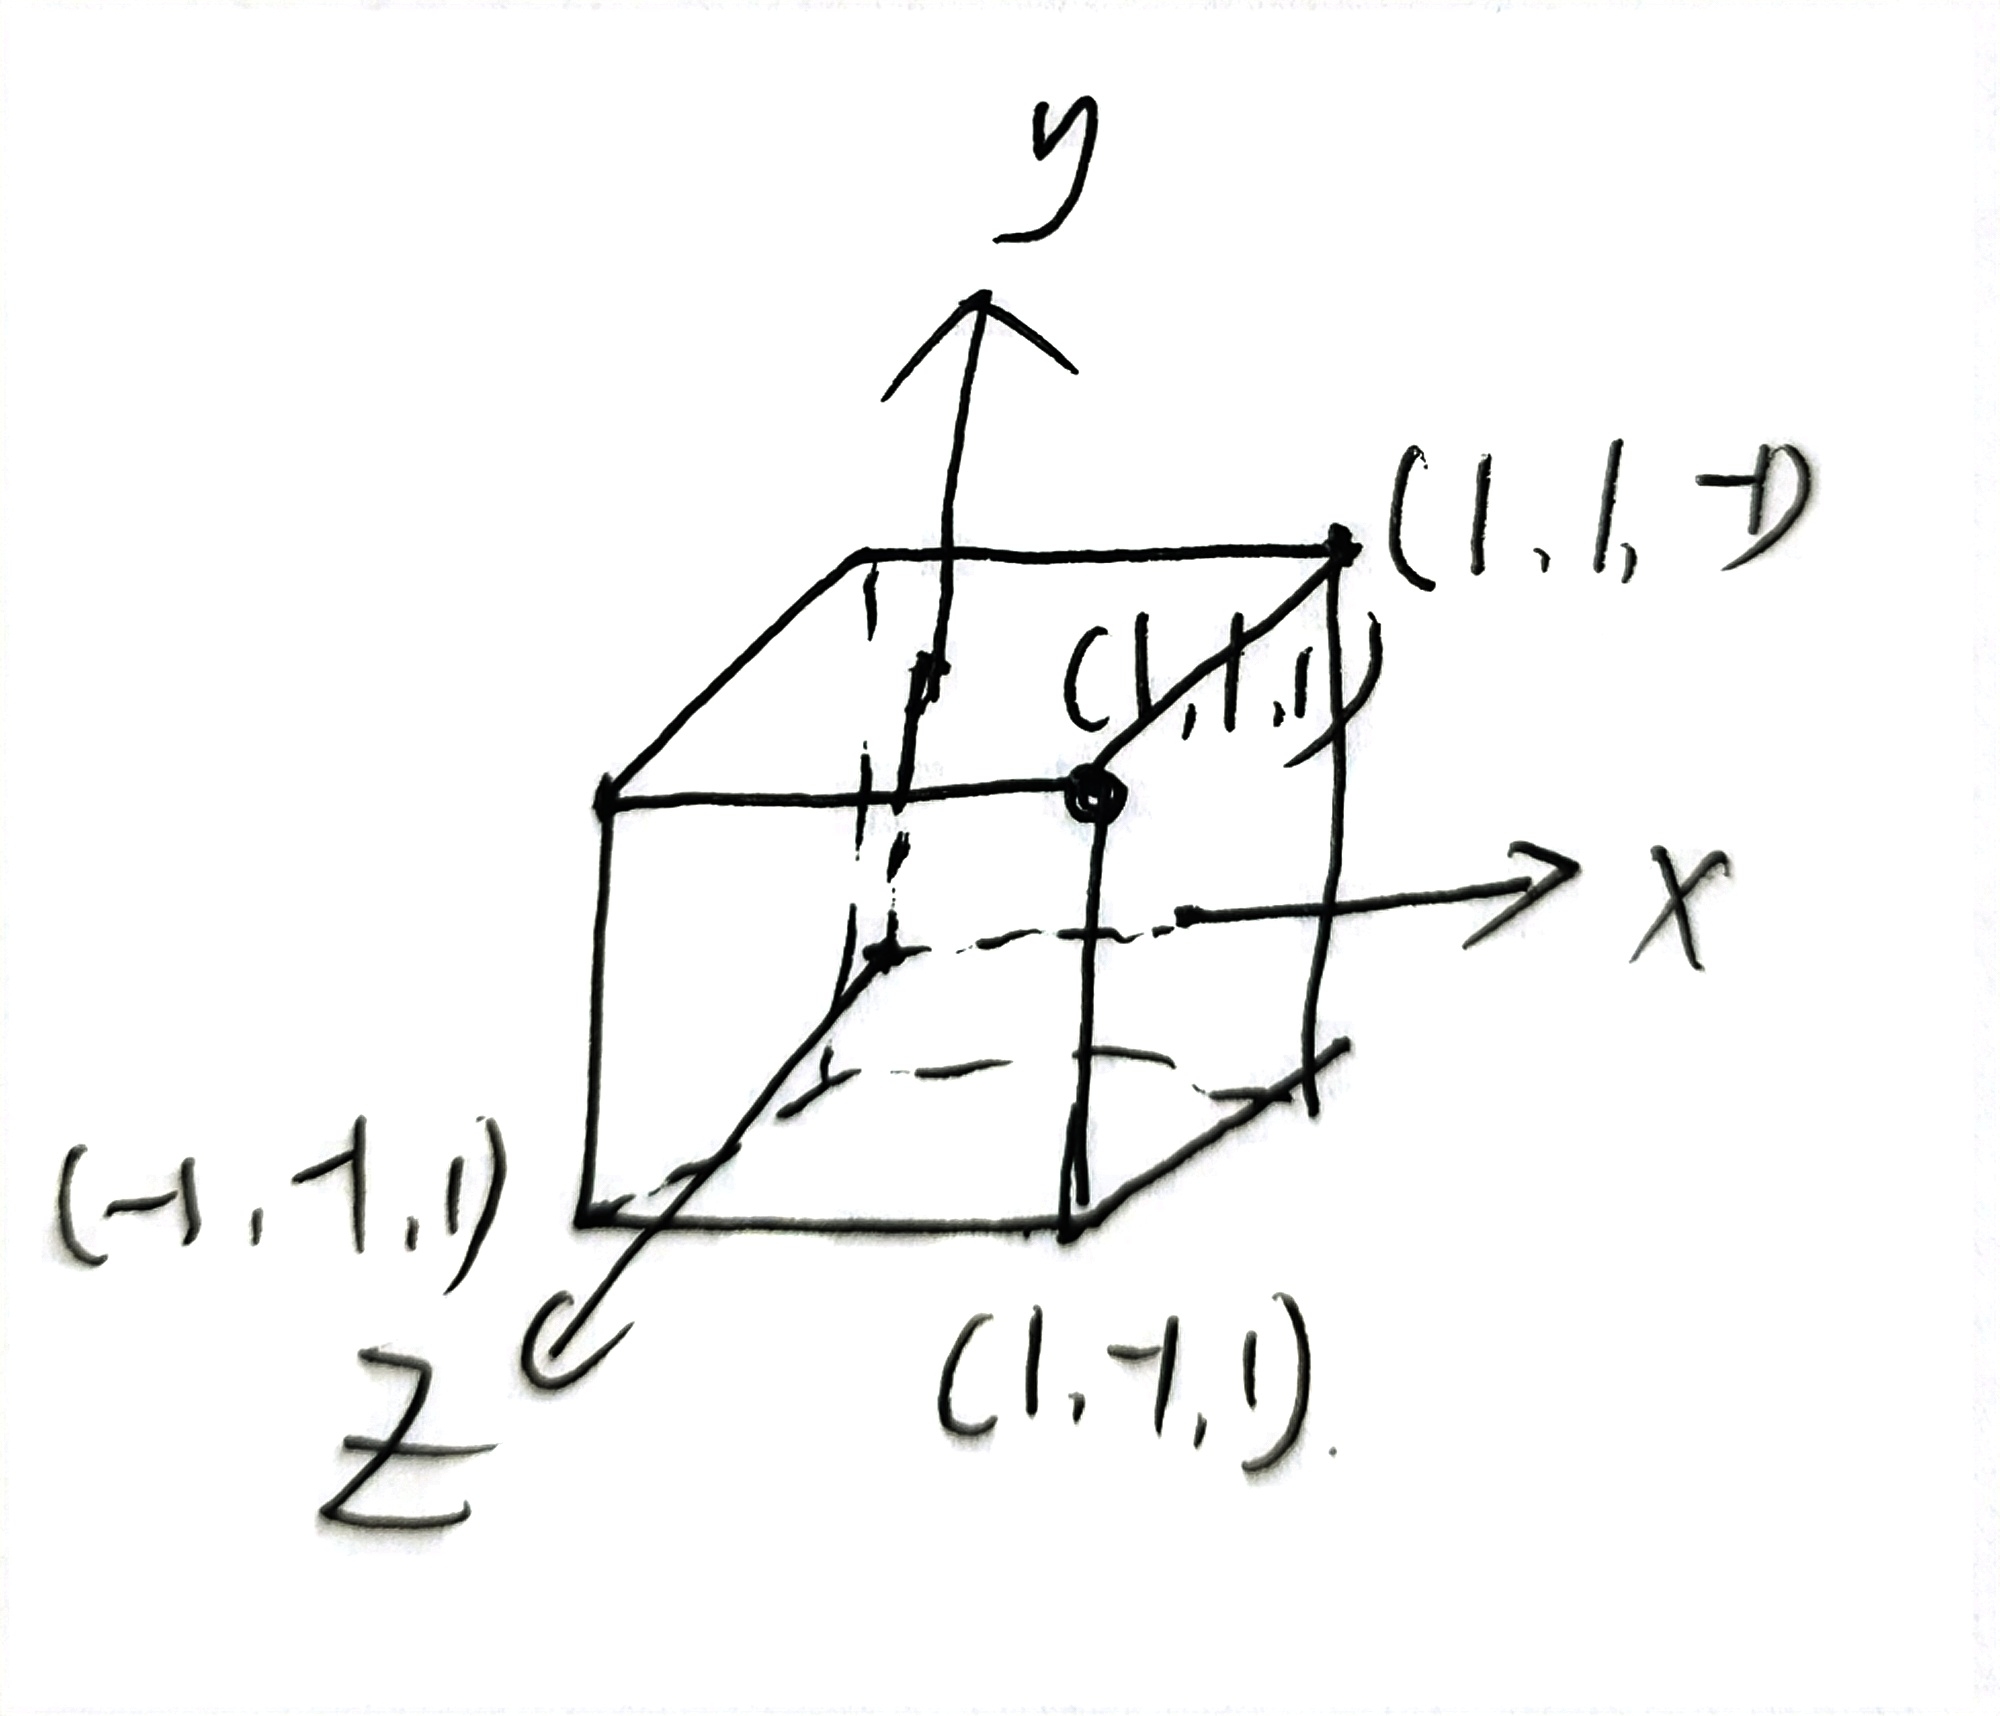 y
(1, 1, -1)
(1, 1, 1)
x
(-1, -1, 1)
z
(1, -1, 1).